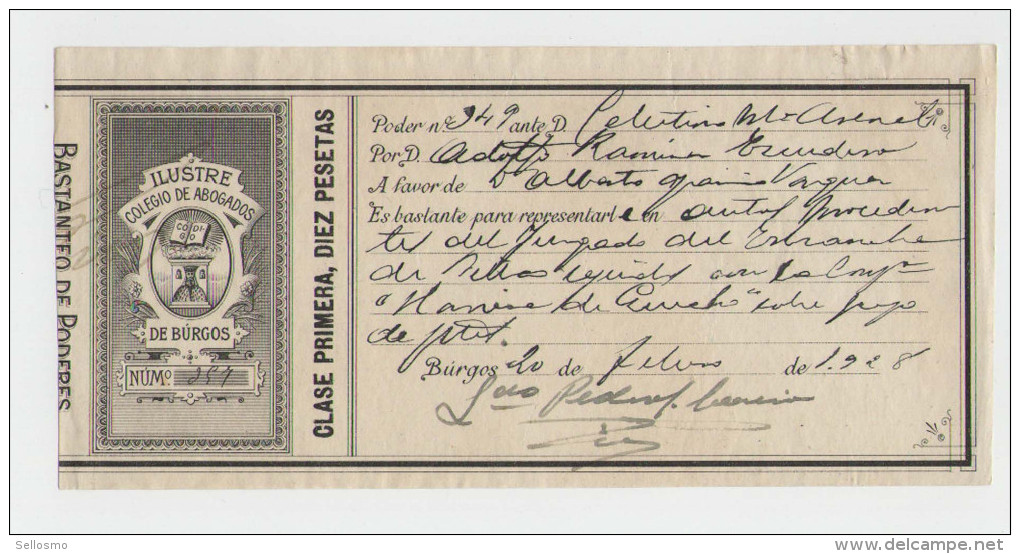 BASTANTEO DE PODERES
ILUSTRE
COLEGIO DE ABOGADOS
CODIGO
DE BÚRGOS
NÚMº.
CLASE PRIMERA, DIEZ PESETAS
Poder nº 949 ante D. Celestino Mª
Por D. Adolfo Ramirez Escudero
A favor de D Alberto Vazquez
Es bastante para representarle en autos proceden
tes del Juzgado del Ensanche
de Bilbao seguidos con la Compª
sobre pago
de ptas.
Búrgos 20 de febrero de 1.928
Ldo Pedro
Sellosmo
www.delcampe.net